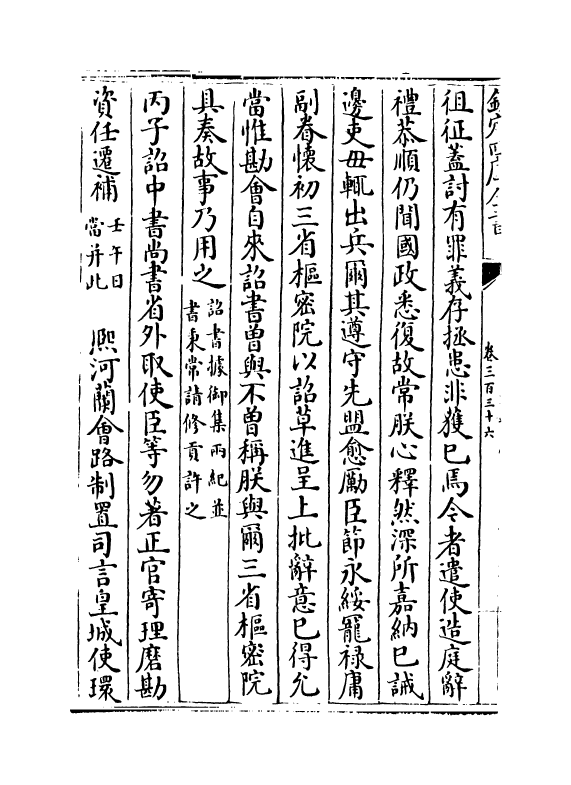 欽定四庫全書
卷三百三十六
徂征蓋討有罪義存拯患非獲已焉令者遣使造庭辭
禮恭順仍聞國政悉復故常朕心釋然深所嘉納已誡
邊吏毋輒出兵爾其遵守先盟愈勵臣節永綏寵禄庸
副眷懐初三省樞密院以詔草進呈上批辭意已得允
當惟勘會自來詔書曽與不曽稱朕與爾三省樞密院
具奏故事乃用之詔書據御集兩紀並
書秉常請修貢許之
丙子詔中書尚書省外取使臣等勿著正官寄理磨勘
資任遷補壬午日
當并此
熈河蘭會路制置司言皇城使環